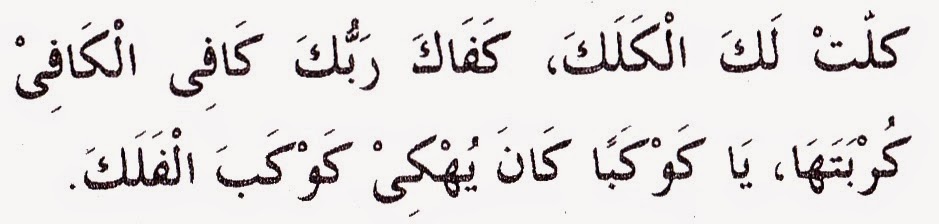 كلّتْ لَكَ الْكَلَكَ، كَفَاكَ رَبُّكَ كَافِى الْكَافِىْ
كُرْبَتَهَا، يَا كَوْكَبًا كَانَ يُهْكِىْ كَوْكَبَ الْفَلَكَ.